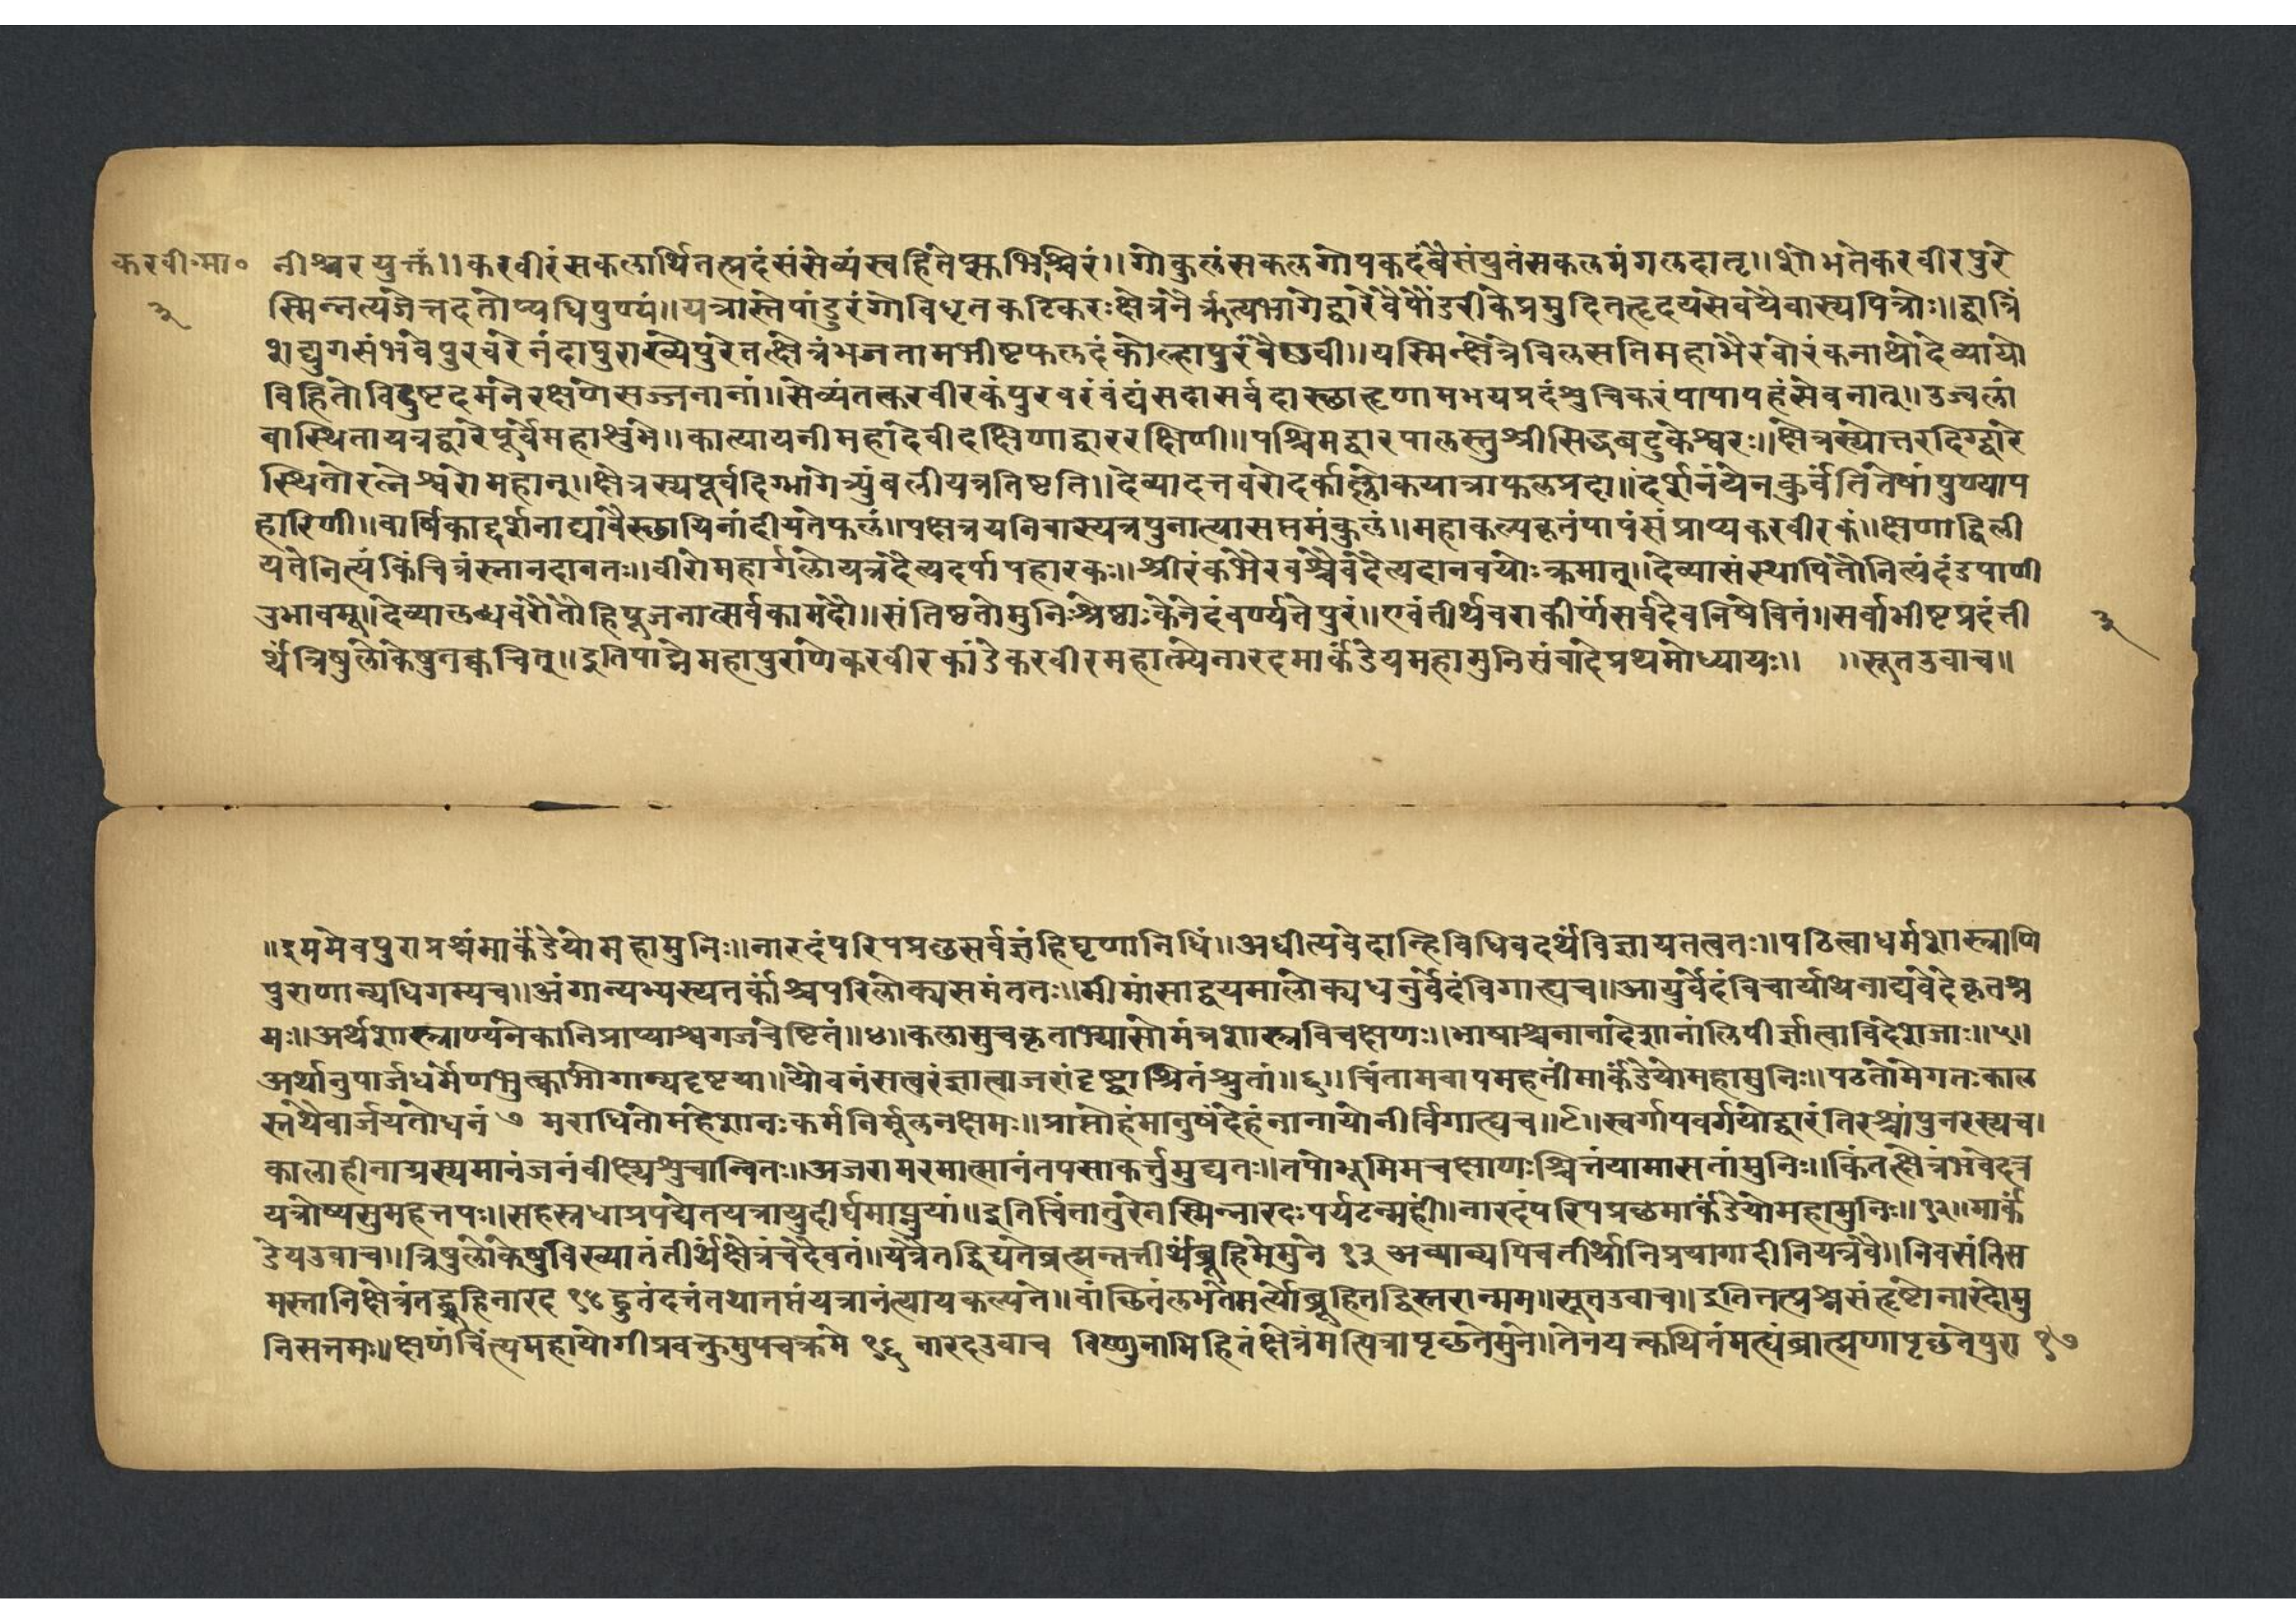 करवी॰मा॰
नीश्वरयुक्तं।।करवीरंसकलार्थितत्प्रदंसंसेव्यंस्वहितेप्सुभिश्चिरं।।गोकुलंसकलगोपकदंबैसंप्लुतंसकलमंगलदातृ।।शोभतेकरवीरपुरे
३
स्मिन्नत्यजेत्तदतोप्यधिपुण्यं॥यत्रास्तेपांडुरंगोविधृतकटिकरःक्षेत्रनैर्ऋत्यभागेद्वारेवैपौंडरीकेप्रमुदितहृदयसेवयैवास्यपित्रोः॥द्वात्रिं
शद्युगसंभवेपुरवरेनंदापुराख्येपुरेतत्क्षेत्रंभजतामभीष्टफलदंकोल्हापुरंवैष्णवी॥यस्मिन्क्षेत्रेविलसतिमहाभैरवोरंकनाथोदेव्यायो
विहितोविदुष्टदमनेरक्षणेसज्जनानां॥सेव्यंतत्करवीरकंपुरवरंवंद्यंसदासर्वदास्छातृणामभयप्रदंशुचिकरंपापापहंसेवनात्॥उज्वलां
बास्थितायत्रद्वारेपूर्वेमहाशुभे॥कात्यायनीमहादेवीदक्षिणाद्वाररक्षिणी॥पश्चिमद्वारपालस्तुश्रीसिद्धबटुकेश्वरः॥क्षेत्रस्योत्तरदिग्द्वारे
स्थितोरत्नेश्वरोमहान्॥क्षेत्रस्यपूर्वदिग्भागेत्र्युंबलीयत्रतिष्टति॥देव्यादत्तवरोदर्काल्लोकयात्राफलप्रदा॥दर्शनंयेनकुर्वंतितेषांपुण्याप
हारिणी॥वार्षिकाद्दर्शनाद्यावैस्छायिनांदीयतेफलं॥प्रक्षेत्रयनिवास्यत्रपुनात्यासप्तमंकुलं॥महाकल्पकृतंपापंसंप्राप्यकरवीरकं॥क्षणाद्विली
यतेनित्यंकिंचित्रंस्नानदानतः॥वीरोमहार्गलोयत्रदैत्यदर्पापहारकः॥श्रीरंकभैरवश्चैवदैत्यदानवयोःक्रमात्॥देव्यासंस्थापितौनित्यंदंडपाणी
उभावमू॥देव्यालब्धवरौतौहिपूजनात्सर्वकामदौ॥संतिष्ठतोमुनिश्रेष्ठाःकेनेदंवर्ण्यतेपुरं॥एवंतीर्थवराकीर्णसर्वदेवनिषेवितं॥सर्वाभीष्टप्रदंती
३
र्थंत्रिषुलोकेषुनक्वचित्॥इतिपाद्मेमहापुराणेकरवीरकांडेकरवीरमहात्म्येनारदमार्कंडेयमहामुनिसंवादेप्रथमोध्यायः॥ ॥सूतउवाच॥
॥इममेवपुराप्रश्नंमार्कंडेयोमहामुनिः॥नारदंपरिपप्रछसर्वज्ञंहिघृणानिधिं॥अधीत्यवेदान्हिविधिवदर्थंविज्ञायतत्वतः॥पठित्वाधर्मशास्त्राणि
पुराणान्यधिगम्यच॥अंगान्यभ्यस्यतर्कांश्चपरिलोक्यसमंततः॥मीमांसाद्वयमालोक्यधनुर्वेदंविगाह्यच॥आयुर्वेदंविचार्याथनाट्यवेदेकृतश्र
मः॥अर्थशास्त्राण्यनेकानिप्राप्याश्वगजचेष्टितं॥४॥कलासुचकृताभ्यासोमंत्रशास्त्रविचक्षणः॥भाषाश्चनानादेशानांलिपीर्ज्ञात्वाविदेशजाः॥५॥
अर्थानुपार्जधर्मेणभुत्काभोगान्यदृष्टया॥यौवनंसत्वरंज्ञात्वाजरांदृष्ट्वाश्रितंश्रुतां॥६॥चिंतामवापमहतींमार्कंडेयोमहामुनिः॥पठतोमेगतःकाल
स्तथैवार्जयतोधनं ७ मराधितोमहेशानःकर्मनिर्मूलनक्षमः॥प्राप्तोहंमानुषंदेहंनानायोनीर्विगाह्यच॥८॥स्वर्गापवर्गयोद्वारंतिरश्चांपुनरस्यच।
कालाहीनाग्रस्यमानंजनंवीक्ष्यशुचान्वितः॥अजरामरमात्मानंतपसाकर्त्तुमुद्यतः॥तपोभूमिमचक्षाणःश्चित्तंयामासतांमुनिः॥किंतत्क्षेत्रंभवेदत्र
यत्रोष्यसुमहत्तपः॥सहस्रधाप्रपद्येतयत्रायुदीर्घमाप्नुयां॥इतिचिंतातुरेतस्मिन्नारदःपर्यटन्महीं॥नारदंपरिपप्रछमार्कंडेयोमहामुनिः॥१२॥मार्कं
डेयउवाच॥त्रिषुलोकेषुविख्यातंतीर्थंक्षेत्रंचदैवतं॥यत्रैतद्विद्यतेब्रह्मन्तत्तीर्थंब्रूहिमेमुने १३ अव्याव्यपिचतीर्थानिप्रयागादीनियत्रवै॥निवसंतिस
मस्तानिक्षेत्रंतद्ब्रूहिनारद १५ हुतंदत्तंतथातप्तंयत्रानंत्यायकल्पते॥वांछितंलभतेमर्त्योब्रूहितद्विस्तरान्मम॥सूतउवाच॥इतितत्प्रश्नसंहृष्टोनारदोमु
निसत्तमः॥क्षणंचिंत्यमहायोगीप्रवक्तुमुपचक्रमे १६ नारदउवाच विष्णुनाभिहितंक्षेत्रंमत्पित्रापृछतेमुने॥तेनयत्कथितंमत्यंब्रह्मणापृछतेपुरा १७